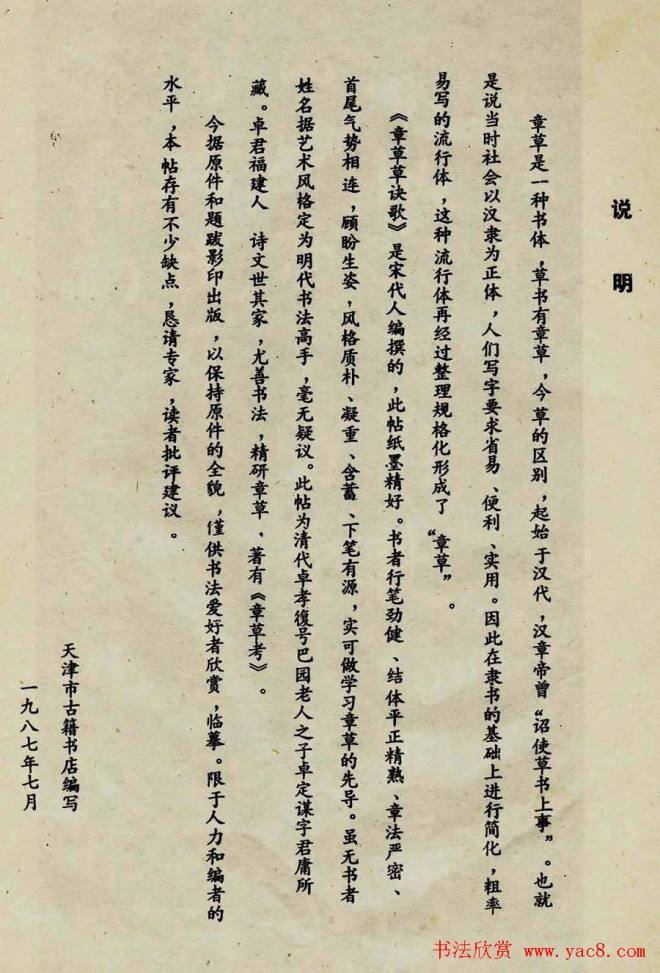 说明
章草是一种书体，草书有章草，今草的区别，起始于汉代，汉章帝曾“诏使草书上事”。也就
是说当时社会以汉隶为正体，人们写字要求省易、便利、实用。因此在隶书的基础上进行简化，粗率
易写的流行体，这种流行体再经过整理规格化形成了“章草”。
《章草草诀歌》是宋代人编撰的，此帖纸墨精好。书者行笔劲健、结体平正精熟、章法严密、
首尾气势相连，顾盼生姿，风格质朴、凝重、含蓄、下笔有源，实可做学习章草的先导。虽无书者
姓名据艺术风格定为明代书法高手，毫无疑议。此帖为清代卓孝復号巴园老人之子卓定谋字君庸所
藏。卓君福建人　诗文世其家，尤善书法，精研章草，著有《章草考》。
今据原件和题跋影印出版，以保持原件的全貌，仅供书法爱好者欣赏，临摹。限于人力和编者的
水平，本帖存有不少缺点，恳请专家，读者批评建议。
天津市古籍书店编写
一九八七年七月
书法欣赏 www.yac8.com